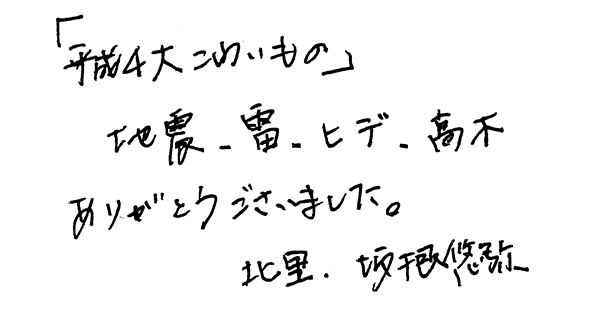 「平成4大こわいもの」
地震、雷、ヒデ、高木
ありがとうございました。
北里、坂根悠弥